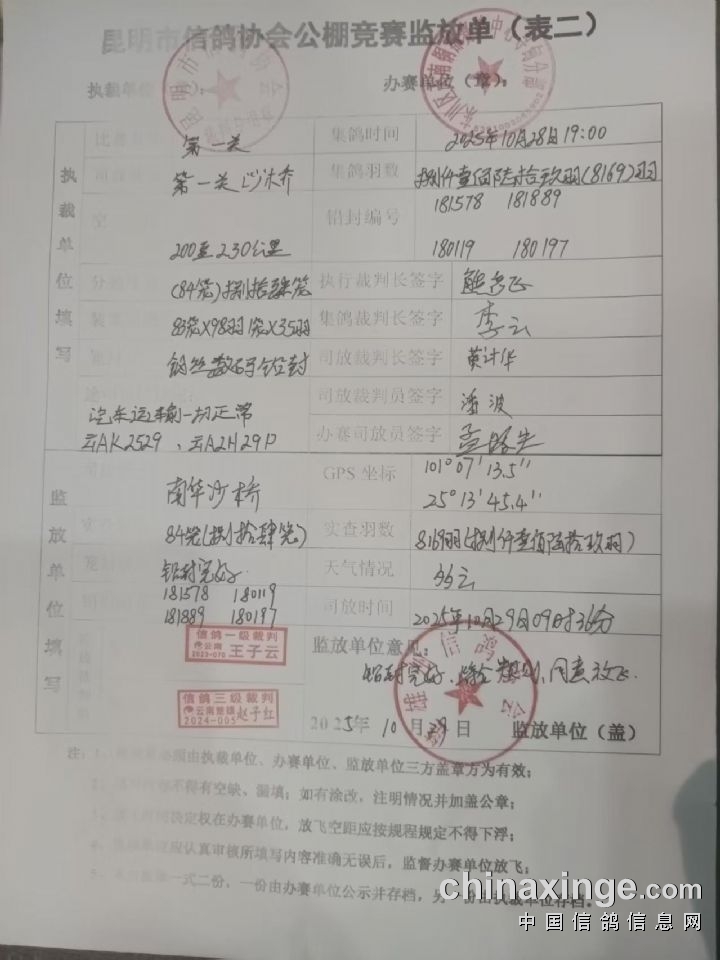 昆明市信鸽协会公棚竞赛监放单（表二）
执裁单位
办赛单位（章）：
执裁单位填写
第一关
集鸽时间
2025年10月28日19:00
第一关沙桥
集鸽羽数
捌仟壹佰陆拾玖羽(8169)羽
200至230公里
铅封编号
181578 181889
180119 180197
(84笼)捌拾肆笼
执行裁判长签字
83笼×98羽 1笼×35羽
集鸽裁判长签字
李云
钢丝数码铅封
司放裁判长签字
汽车运输一切正常
云AK2529、云A2H29P
司放裁判员签字
潘波
办赛司放员签字
监放单位填写
南华沙桥
GPS 坐标
101°07'13.5"
25°13'45.4"
84笼(捌拾肆笼)
实查羽数
8169羽(捌仟壹佰陆拾玖羽)
铅封完好
天气情况
多云
181578 180119
181889 180197
司放时间
2025年10月29日09时36分
信鸽一级裁判
云南 王子云
2023-070
监放单位意见：
铅封完好、符合规则、同意放飞.
信鸽三级裁判
云南楚雄 赵子红
2024-005
2025年10月29日 监放单位（盖）
注：1、
须由执裁单位、办赛单位、监放单位三方盖章方为有效；
不得有空缺、漏填；如有涂改，注明情况并加盖公章；
决定权在办赛单位，放飞空距应按规程规定不得下浮；
应认真审核所填写内容准确无误后，监督办赛单位放飞；
一式二份，一份由办赛单位公示并存档，另一份由执裁单位存档。
chinaxinge.com
中国信鸽信息网